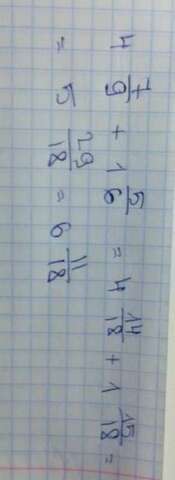 4 7/9 + 1 5/6 = 4 14/18 + 1 15/18 =
= 5 29/18 = 6 11/18